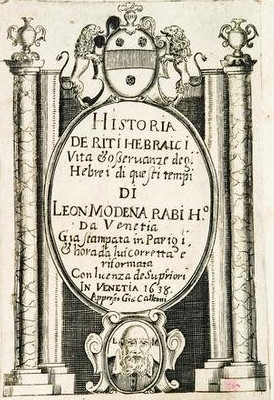 HISTORIA
DE RITI HEBRAICI
Vita & osservanze degl'
Hebrei di questi tempi
DI
LEON MODENA RABI H.º
Da Venetia
Gia stampata in Parigi,
& hora da lui corretta e
riformata
Con licenza de Supriori
IN VENETIA 1638.
Appresso Gio: Calleoni